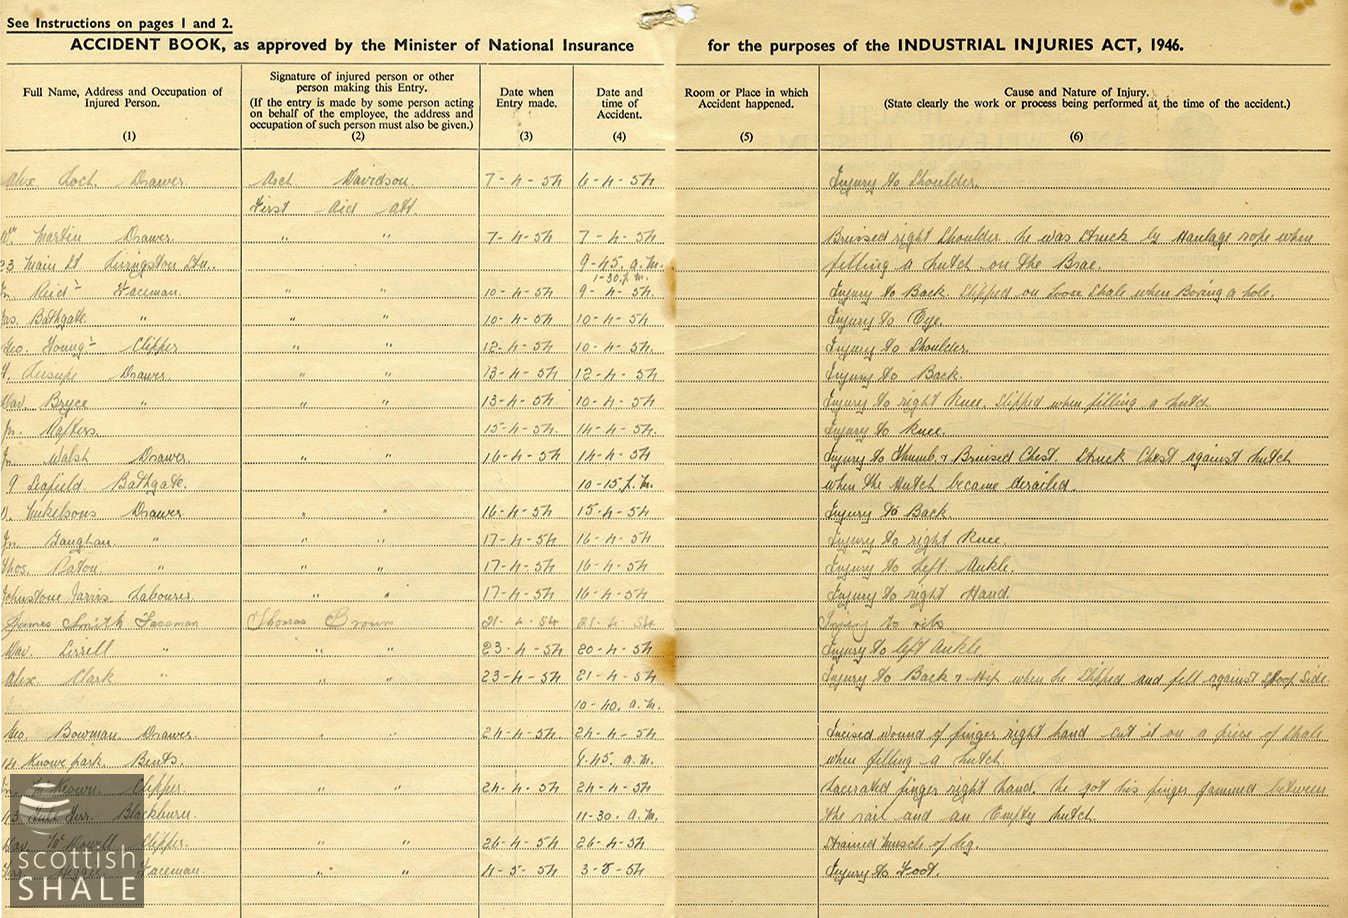 See Instructions on pages 1 and 2.
ACCIDENT BOOK, as approved by the Minister of National Insurance for the purposes of the INDUSTRIAL INJURIES ACT, 1946.
Full Name, Address and Occupation of Injured Person.
(1)
Signature of injured person or other person making this Entry.
(If the entry is made by some person acting on behalf of the employee, the address and occupation of such person must also be given.)
(2)
Date when Entry made.
(3)
Date and time of Accident.
(4)
Room or Place in which Accident happened.
(5)
Cause and Nature of Injury.
(State clearly the work or process being performed at the time of the accident.)
(6)
Alex Loch Drawer Arch Davidson 7-4-54 6-4-54 Injury to Shoulder.
First Aid Att
Wm Martin Drawer. " " 7-4-54 7-4-54 Bruised right Shoulder he was Struck by Haulage rope when
23 Main St Livingston Stn. 9-45. a.m. filling a hutch on the Brae.
1-30.p.m.
Jn Reid Faceman. " " 10-4-54 9-4-54. Injury to Back. Slipped on Loose Shale when Boring a hole.
Jas. Bathgate " " " 10-4-54 10-4-54 Injury to Eye.
Geo. Young Clipper " " 12-4-54 10-4-54. Injury to Shoulder.
Drawer. " " 13-4-54 12-4-54 Injury to Back.
Dav. Bryce " " " 13-4-54 10-4-54 Injury to right Knee. Slipped when filling a hutch
Jn. 15-4-54. 14-4-54. Injury to Knee.
Jn. Walsh Drawer. " " 16-4-54 14-4-54 Injury to Thumb & Bruised Chest. Struck Chest against hutch
9 Leafield Bathgate. 10-15 p.m. when the Hutch became derailed.
Drawer " " 16-4-54 15-4-54 Injury to Back
Jn. Gaughan " " " 17-4-54 16-4-54 Injury to right Knee.
Thos. Paton " " " 17-4-54 16-4-54 Injury to left Ankle.
Johnstone Jarvis Labourer " " 17-4-54 16-4-54 Injury to right Hand.
James Smith Faceman Thomas Brown 21-4-54 21-4-54 Injury to ribs
Dav. " " " 23-4-54 20-4-54 Injury to left Ankle
Alex. Clark " " " 23-4-54 21-4-54 Injury to Back & Hip when he Slipped and fell against Stoop Side.
10-40. a.m.
Geo. Bowman Drawer. " " 24-4-54 24-4-54 Incised wound of finger right hand cut it on a piece of Shale
14 Knowe park Bents. 45. a.m. when filling a hutch.
McKeown Clipper " " 24-4-54 24-4-54 Lacerated finger right hand. he got his finger jammed between
Terr. Blackburn 11-30. a.m. the rail and an Empty hutch.
Dav. McDowell Clipper. " " 26-4-54 26-4-54 Strained Muscle of leg.
Faceman. " " 4-5-54 3-5-54 Injury to Foot.
scottish
SHALE